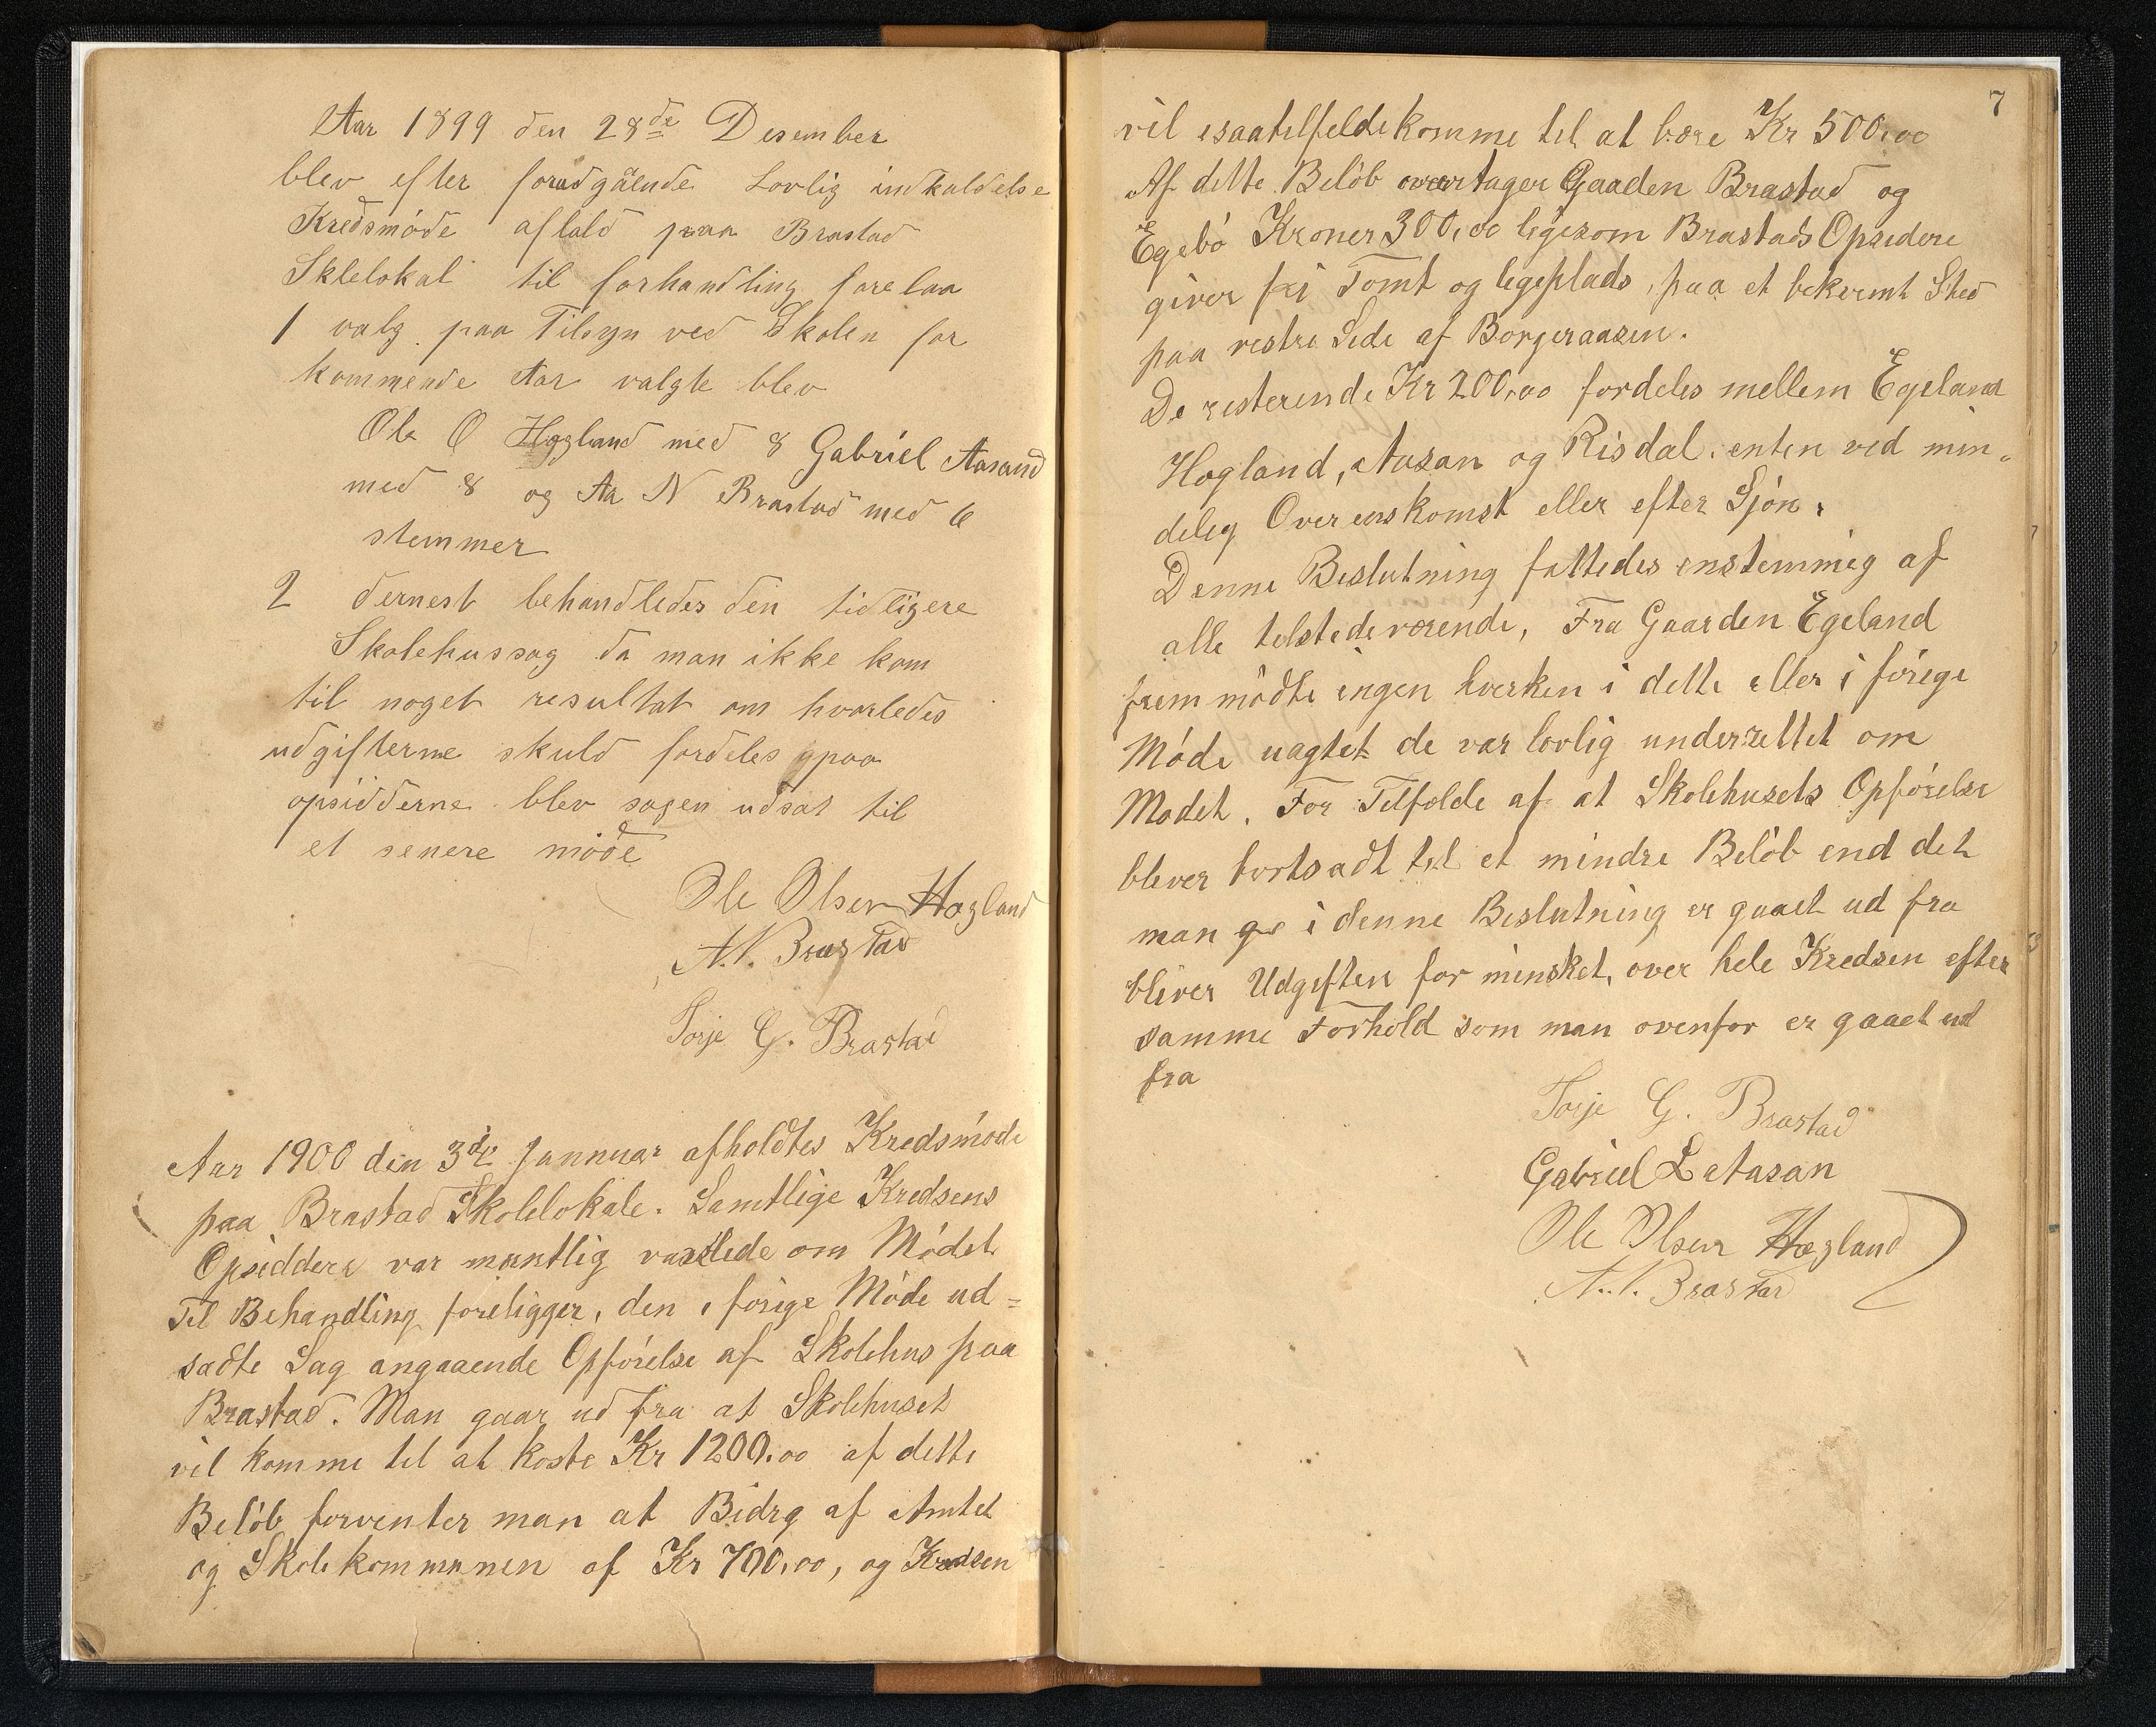 Aar 1899 den 28de Desember
blev efter foradgålende Lovlig indkaldelse
Kredsmøde aflald paa Brastad
Sklelokal til forhandling forelaa
1 valg paa Tilsyn ved Skolen for
kommende Aar valgte blev
Ole O Hægland med 8 Gabriel Aasand
med 8 og Aa N Brastad med 6
stemmer
2 dernest behandledes den tidligere
Skolehussag da man ikke kom
til noget resultat om hvorledes
udgifterne skuld fordeles paa
opsidderne blev sagen udsat til
et senere møde
Ole Olsen Hægland
A.N. Brastad
Torje G. Brastad
Aar 1900 den 3die Jannuar afholdtes Kredsmøde
paa Brastad Skolelokale. Samtlige Kredsens
Opsiddere var muntlig varslede om Mødet
Til Behandling foreligger, den i forige Møde ud=
sadte Sag angaaende Opførelse af Skolehus paa
Brastad. Man gaar ud fra at Skolehuset
vil komme til at koste Kr 1200.00 af dette
Beløb forventer man at Bidrg af Amtet
og Skolekommunen af Kr 700.00, og Kredsen
7
vil isaatilfelde komme til at bære Kr 500.00
Af dette Beløb overtager Gaaden Brastad og
Egebø Kroner 300.00 ligesom Brastads Opsidere
giver fri Tomt og legeplads, paa et bekvemt Sted
paa vestre Side af Borgeraasen.
De resterende Kr 200.00 fordeles mellem Egeland
Hogland, Aasan og Risdal. enten ved min-
delig Overenskomst eller efter Sjøn.
Denne Beslutning fattedes enstemmig af
alle tilstedeværende, Fra Gaarden Egeland
frem mødte ingen hverken i dette eller i forige
Møde uagtet de var lovlig underrettet om
Mødet. For Tilfælde af at Skolehusets Opførelse
bliver bortsadt til et mindre Beløb end det
man i denne Beslutning er gaaet ud fra
bliver Udgiften for minsket, over hele Kredsen efter
samme Forhold som man ovenfor er gaaet ud
fra
Torje G. Brastad
Gabriel L Aasan
Ole Olsen Hægland
A.N. Brastad